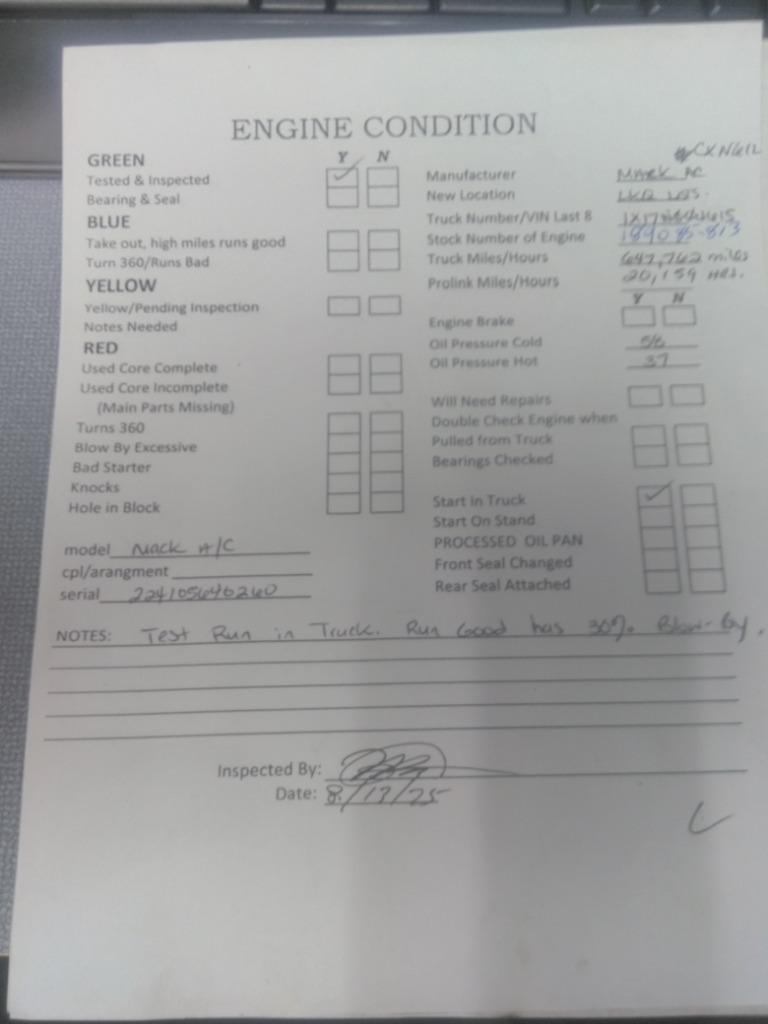 ENGINE CONDITION
GREEN Y N
Tested & Inspected
Bearing & Seal
BLUE
Take out, high miles runs good
Turn 360/Runs Bad
YELLOW
Yellow/Pending Inspection
Notes Needed
RED
Used Core Complete
Used Core Incomplete
(Main Parts Missing)
Turns 360
Blow By Excessive
Bad Starter
Knocks
Hole in Block
model Mack A/C
cpl/arangment
serial
CXN612
Manufacturer Mack AC
New Location LKQ
Truck Number/VIN Last 8
Stock Number of Engine 189085-813
Truck Miles/Hours 647,762 miles
Prolink Miles/Hours 20,159 HRS.
Y N
Engine Brake
Oil Pressure Cold
Oil Pressure Hot 37
Will Need Repairs
Double Check Engine when
Pulled from Truck
Bearings Checked
Start In Truck
Start On Stand
PROCESSED OIL PAN
Front Seal Changed
Rear Seal Attached
NOTES: Test Run in Truck. Run Good has 30% Blow-By.
Inspected By:
Date: 8/13/25